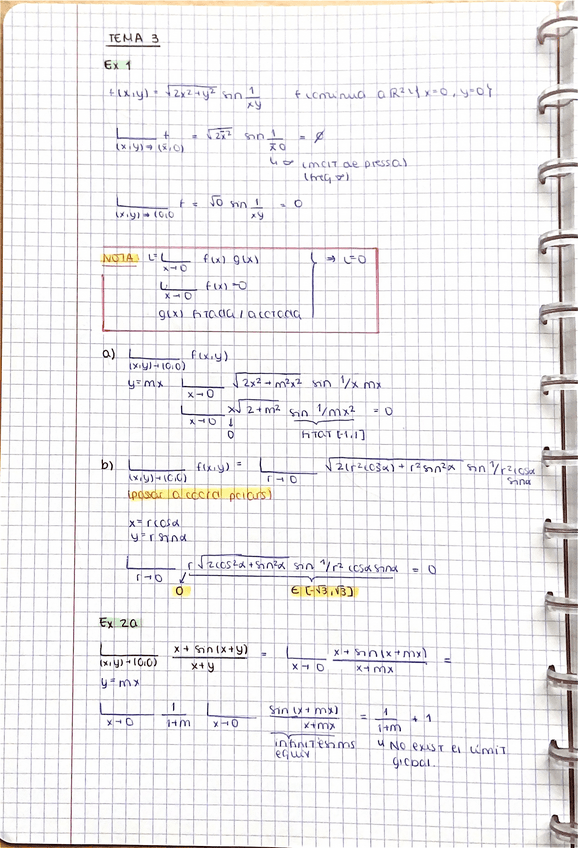 TEMA 3
Ex 1
f(x,y) = √2x²+y² sin 1/xy f contínua a R² \ {x=0, y=0}
L (x,y)→(x̄,0) f = √2x̄² sin 1/x̄0 = ∅
↳ ∞ (incit de pressa)
(freq ∞)
L (x,y)→(0,0 f = √0 sin 1/xy = 0
NOTA L= L x→0 f(x) g(x) } ⇒ L=0
L x→0 f(x)=0
g(x) fitada / acotada
a) L (x,y)→(0,0) f(x,y)
y=mx L x→0 √2x²+m²x² sin 1/x mx
L x→0 x√2+m² sin 1/mx² = 0
↓
0 fitat [-1,1]
b) L (x,y)→(0,0) f(x,y) = L r→0 √2(r²cos²α) + r²sin²α sin 1/r²cosα sinα
(passar a coord polars)
x = r cosα
y = r sinα
L r→0 r√2cos²α+sin²α sin 1/r² cosα sinα = 0
0 ∈ [-√3,√3]
Ex 2a
L (x,y)→(0,0) x + sin(x+y) / x+y = L x→0 x + sin(x+mx) / x+mx =
y=mx
L x→0 1/1+m L x→0 sin(x+mx) / x+mx = 1/1+m + 1
infinitèsims
equiv
↳ No exist el límit
global.